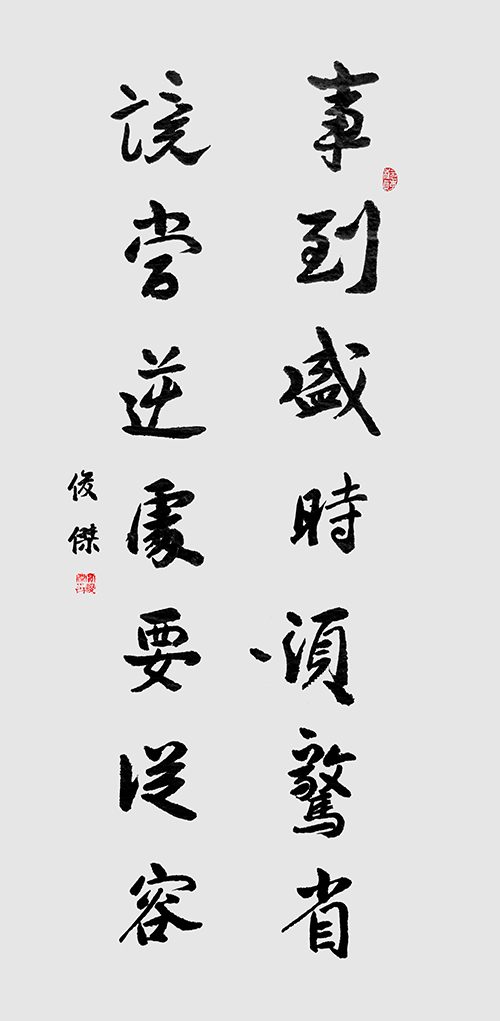 事到盛時須驚省
境當逆處要從容
俊傑